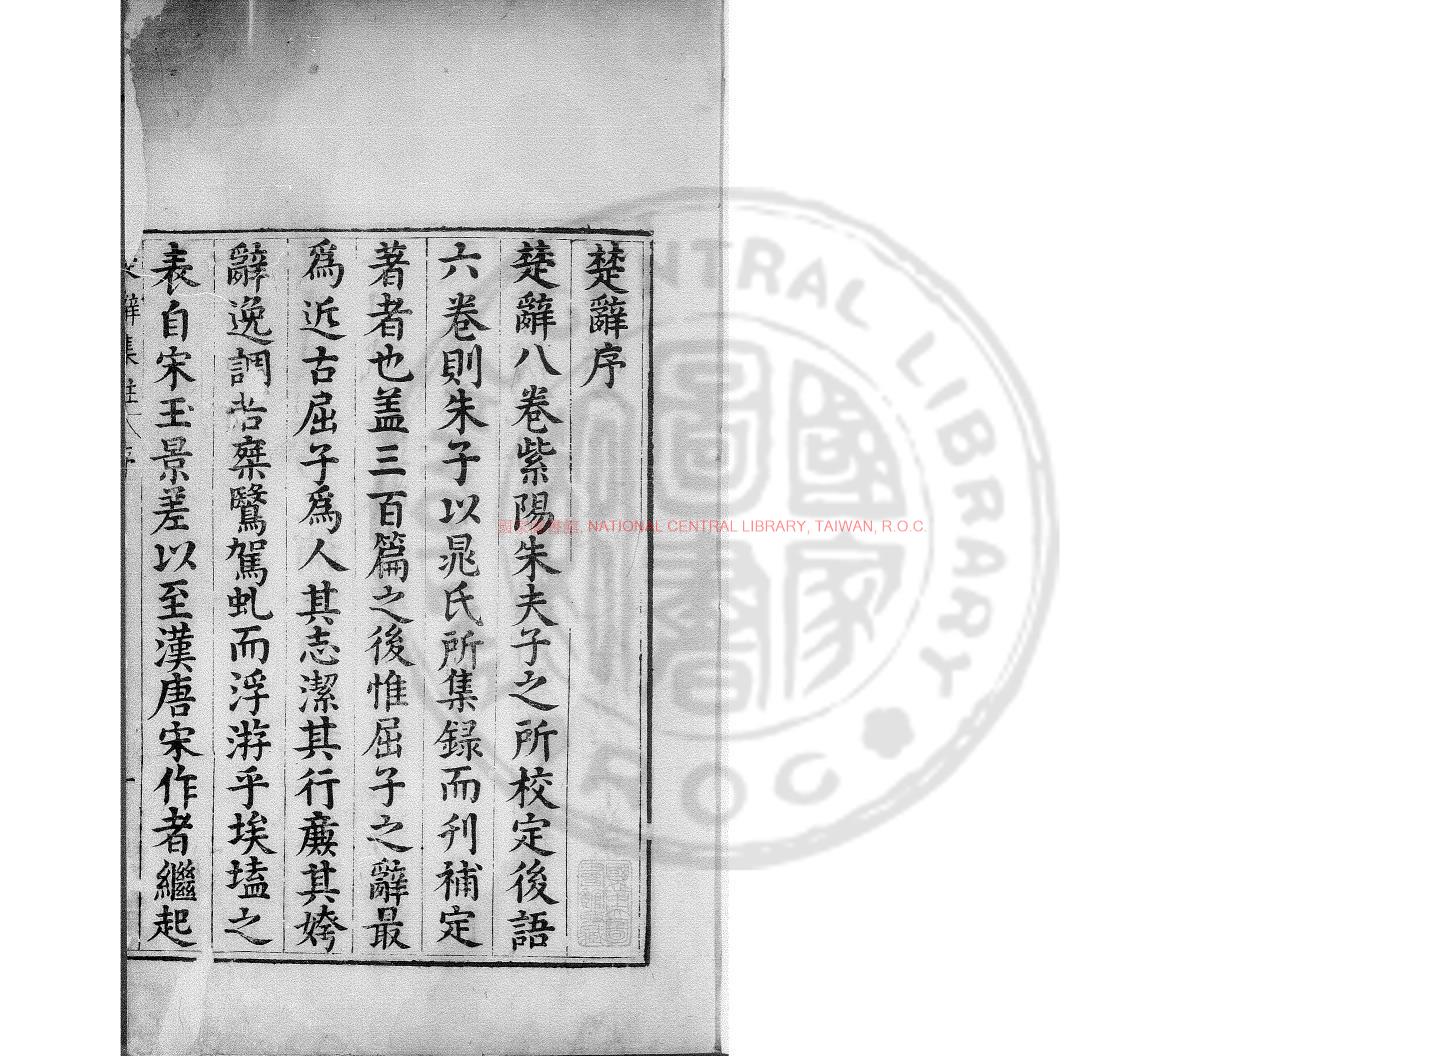 楚辭序
楚辭八卷紫陽朱夫子之所校定後語
六卷則朱子以晁氏所集録而刋補定
著者也盖三百篇之後惟屈子之辭最
爲近古屈子爲人其志潔其行廉其姱
辭逸調若椉鷖駕虬而浮游乎埃壒之
表自宋玉景差以至漢唐宋作者繼起
辭集註 序
國家圖書館, NATIONAL CENTRAL LIBRARY, TAIWAN, R.O.C.
NATIONAL CENTRAL LIBRARY
ROC
國家圖書館